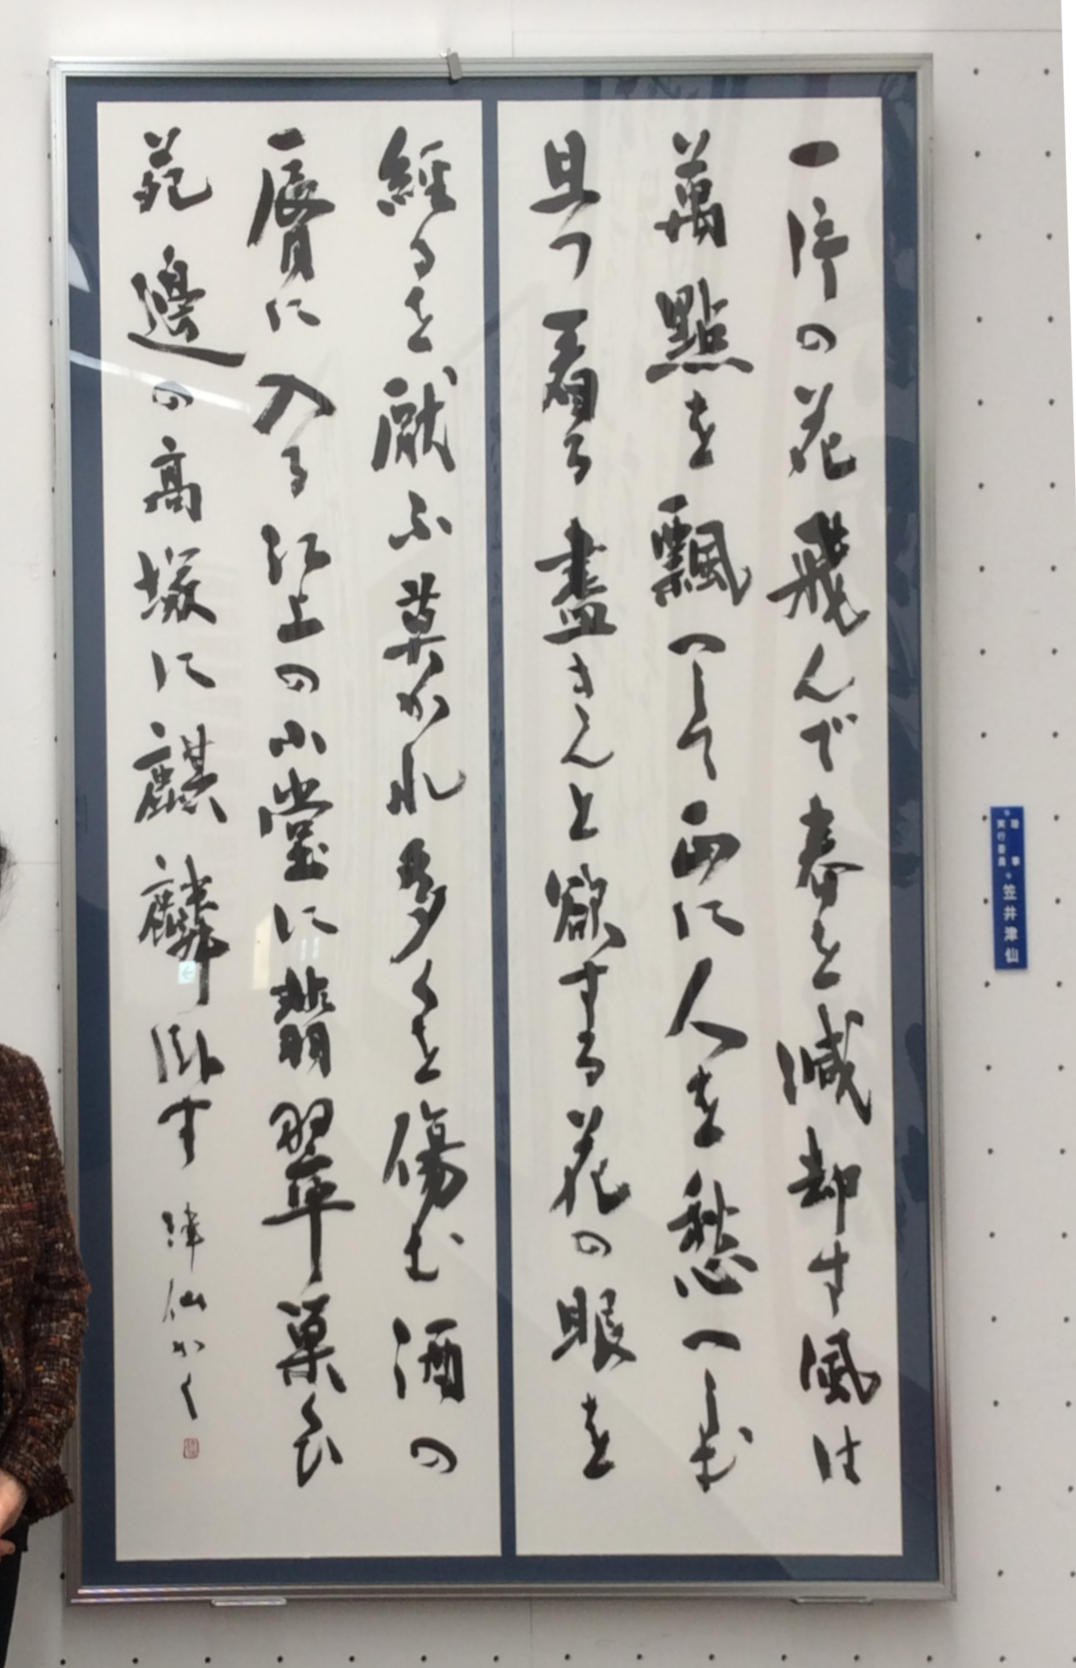 一片の花飛んで春を減却す風は
萬點を飄へして正に人を愁へしむ
且つ看る盡きんと欲する花の眼を
經るを厭ふ莫かれ多くを傷む酒の
脣に入る江上の小堂に翡翠巣くひ
苑邊の高塚に麒麟臥す 津仙かく
理事
実行委員
笠井津仙